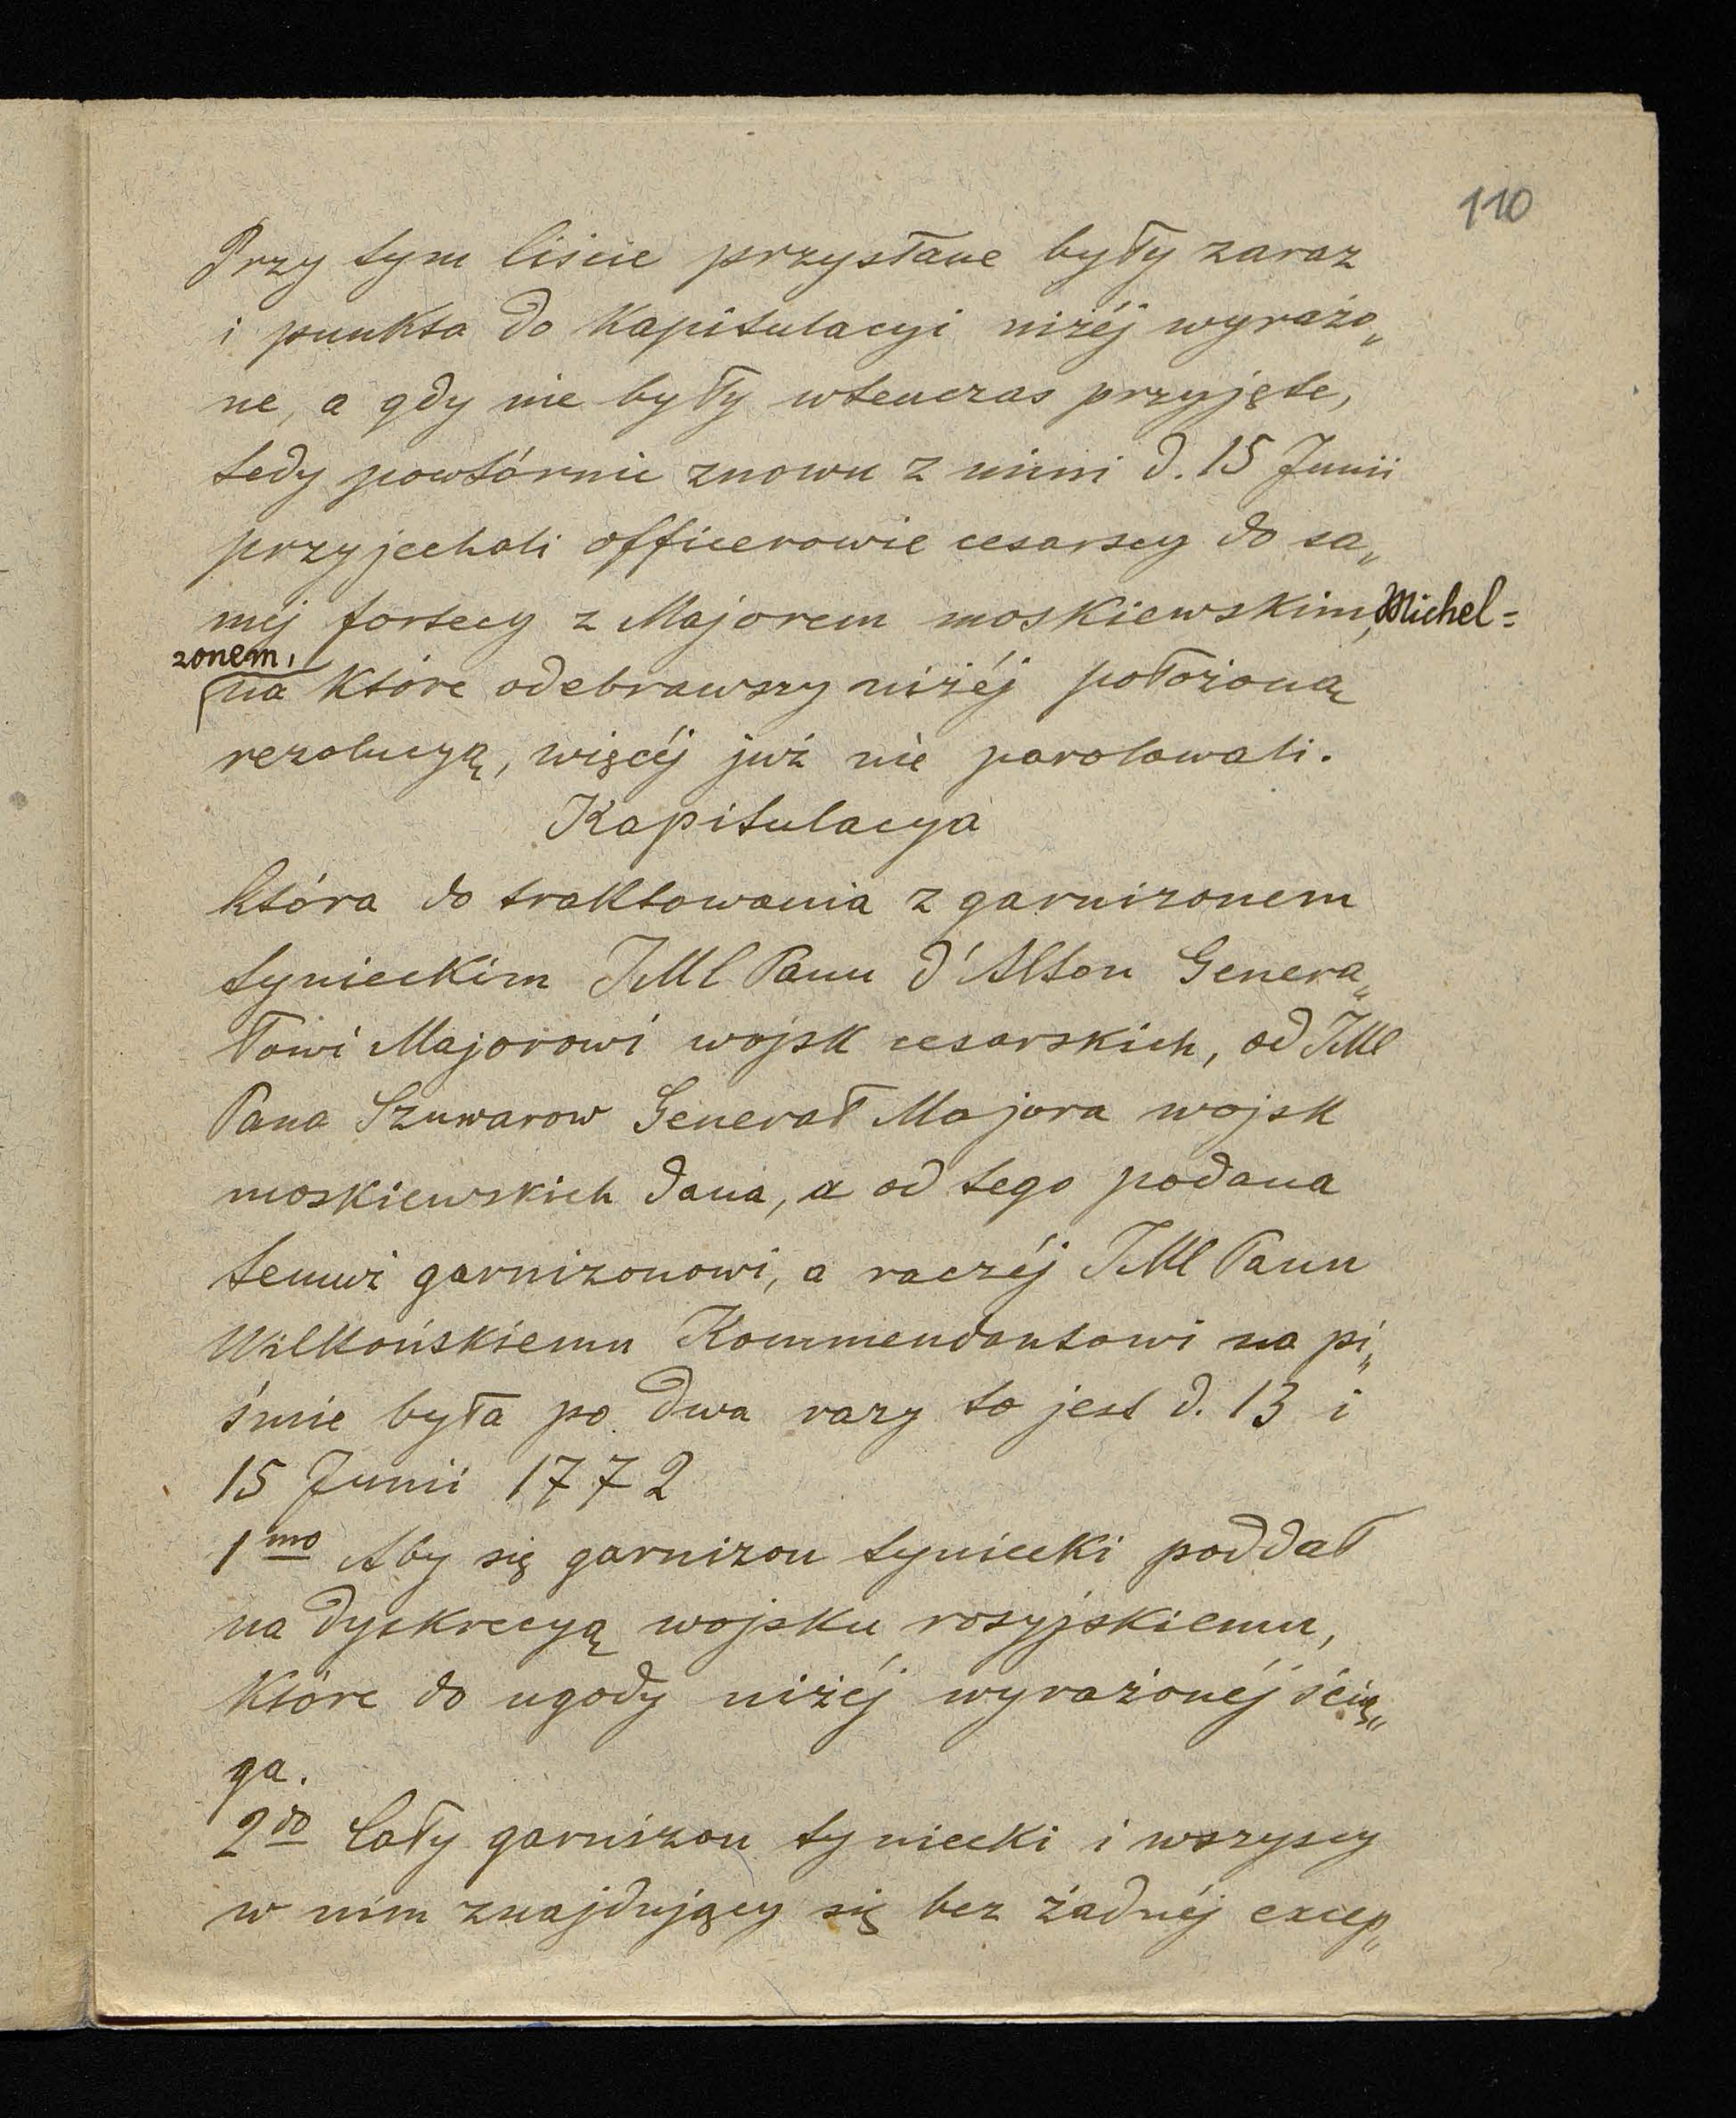 110
Przy tym liście przysłane były zaraz
i punkta do Kapitulacyi niżéj wyrażo„
ne, a gdy nie były wtenczas przyjęte,
tedy powtórnie znowu z nimi d. 15 Junii
przyjechali officerowie cesarscy do sa„
méj fortecy z Majorem moskiewskim, Michel=
zonem,
na które odebrawszy niżéj położoną
rezolucyą, więcéj już nie parolowali.
Kapitulacya
która do traktowania z garnizonem
tynieckim JMC Panu d'Alton Genera„
łowi Majorowi wojsk cesarskich, od JMC
Pana Szuwarow Generał Majora wojsk
moskiewskich dana, a od tego podana
temuż garnizonowi, a raczéj JMC Panu
Wilkońskiemu Kommendantowi na pi„
śmie była po dwa razy to jest d. 13 i
15 Junii 1772
1mo Aby się garnizon tyniecki poddał
na dyskrecyą wojsku rosyjskiemu,
które do ugody niżéj wyrażonéj ścią„
ga.
2do Cały garnizon tyniecki i wszyscy
w nim znajdujący się bez żadnéj excep„